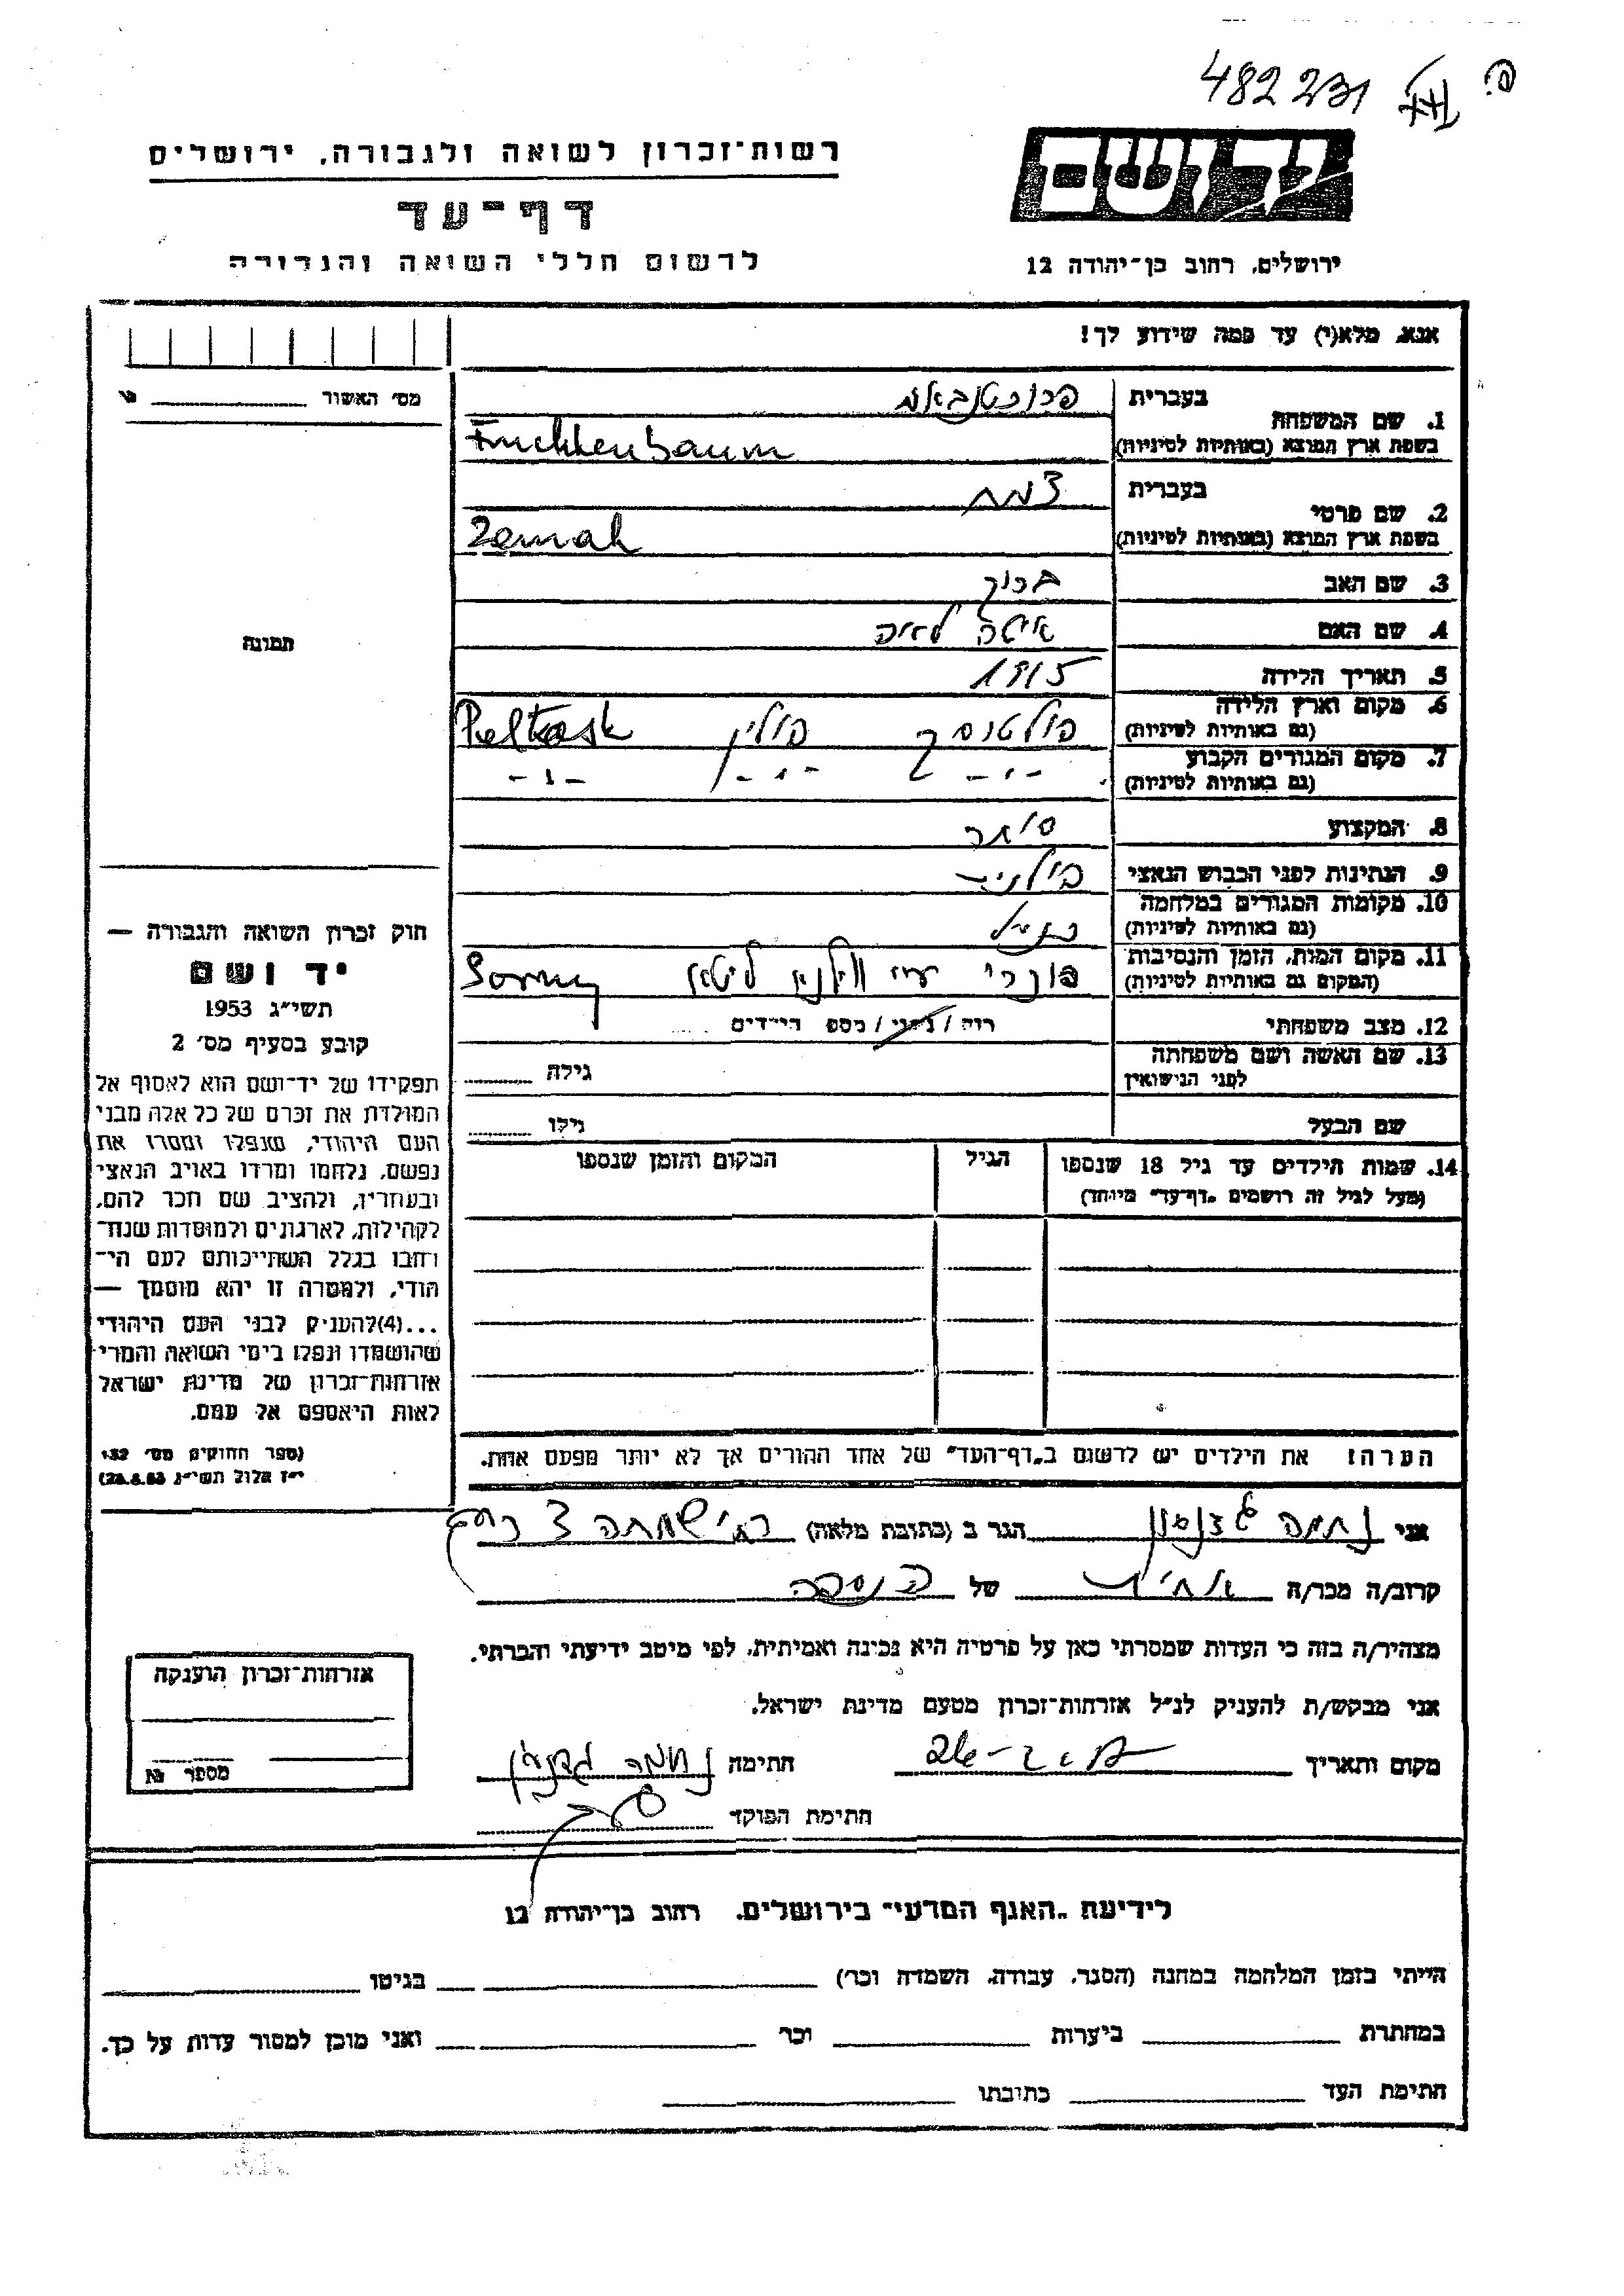 482231
רשות־זכרון לשואה ולגבורה, ירושלים
דף־עד
לרשום חללי השואה והגבורה
יד ושם
ירושלים, רחוב בן־יהודה 12
אנא, מלא(י) עד כמה שידוע לך!
מס׳ האשור
1. שם המשפחה בעברית
פרוכטנבאום
בשפת ארץ המוצא (באותיות לטיניות)
Fruchtenbaum
2. שם פרטי בעברית
צמח
בשפת ארץ המוצא (באותיות לטיניות)
Zemah
3. שם האב ברוך
4. שם האם איטה לאה
5. תאריך הלידה 1915
6. מקום וארץ הלידה
(גם באותיות לטיניות)
פולטוסק פולין Peltusk
7. מקום המגורים הקבוע
(גם באותיות לטיניות)
- " - - " - - " -
8. המקצוע סוחר
9. הנתינות לפני הכבוש הנאצי פולנית
10. מקומות המגורים במלחמה
(גם באותיות לטיניות)
כנ״ל
11. מקום המות, הזמן והנסיבות
(המקום גם באותיות לטיניות)
פונרי ע״י ווילנא ליטא
12. מצב משפחתי רוק / נשוי / מספר הילדים
13. שם האשה ושם משפחתה
לפני הנישואין
גילה
שם הבעל גילו
14. שמות הילדים עד גיל 18 שנספו הגיל המקום והזמן שנספו
(מעל לגיל זה רושמים „דף־עד" מיוחד)
הערה: את הילדים יש לרשום ב„דף־העד" של אחד ההורים אך לא יותר מפעם אחת.
תמונה
חוק זכרון השואה והגבורה —
יד ושם
תשי״ג 1953
קובע בסעיף מס׳ 2
תפקידו של יד־ושם הוא לאסוף אל
המולדת את זכרם של כל אלה מבני
העם היהודי, שנפלו ומסרו את
נפשם, נלחמו ומרדו באויב הנאצי
ובעוזריו, ולהציב שם וזכר להם,
לקהילות, לארגונים ולמוסדות שנח־
רחבו בגלל השתייכותם לעם הי־
הודי, ולמטרה זו יהא מוסמך —
...(4)להעניק לבני העם היהודי
שהושמדו ונפלו בימי השואה והמרי
אזרחות־זכרון של מדינת ישראל
לאות היאספם אל עמם.
(ספר החוקים מס׳ 132
י״ז אלול תשי״ג 28.8.53)
אני נחמה הגר ב (כתובת מלאה)
קרוב/ה מכר/ה אחות של הנספה
מצהיר/ה בזה כי העדות שמסרתי כאן על פרטיה היא נכונה ואמיתית, לפי מיטב ידיעתי והכרתי.
אני מבקש/ת להעניק לנ״ל אזרחות־זכרון מטעם מדינת ישראל.
מקום ותאריך חתימה נחמה
חתימת הפוקד
אזרחות־זכרון הוענקה
מספר №
לידיעת „האגף המדעי" בירושלים, רחוב בן־יהודה 12
הייתי בזמן המלחמה במחנה (הסגר, עבודה, השמדה וכר׳) בגיטו
במחתרת ביערות וכר׳ ואני מוכן למסור עדות על כך.
חתימת העד כתובתו